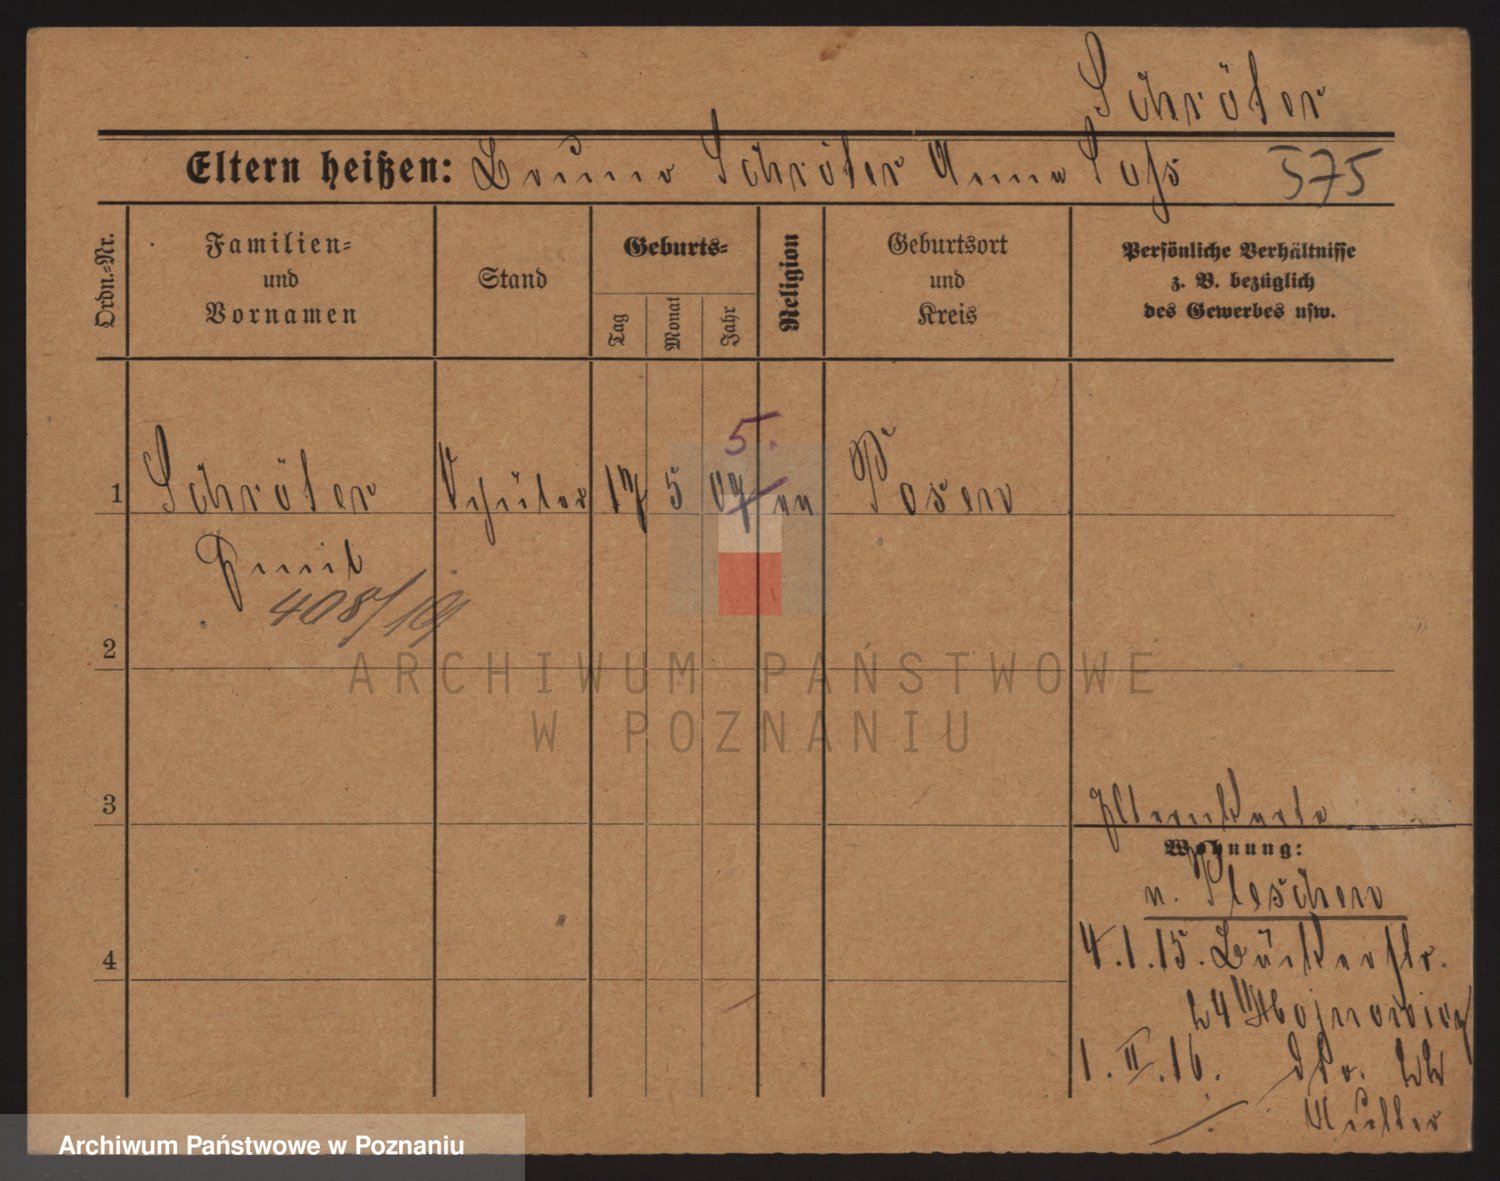 Schröter
Eltern heißen: Bruno Schröter Anna
575
Ordn.-Nr.
Familien-
und
Vornamen
Stand
Geburts-
Tag
Monat
Jahr
Religion
Geburtsort
und
Kreis
Persönliche Verhältnisse
z. B. bezüglich
des Gewerbes usw.
5.
1 Schröter Schüler 17 5 07 Posen
408/19
2
ARCHIWUM PAŃSTWOWE
W POZNANIU
3 Elternkarte
Wohnung:
n. Pleschen
4 4.1.15. Bäckerstr.
24
1.II.16. dto. 22
Archiwum Państwowe w Poznaniu